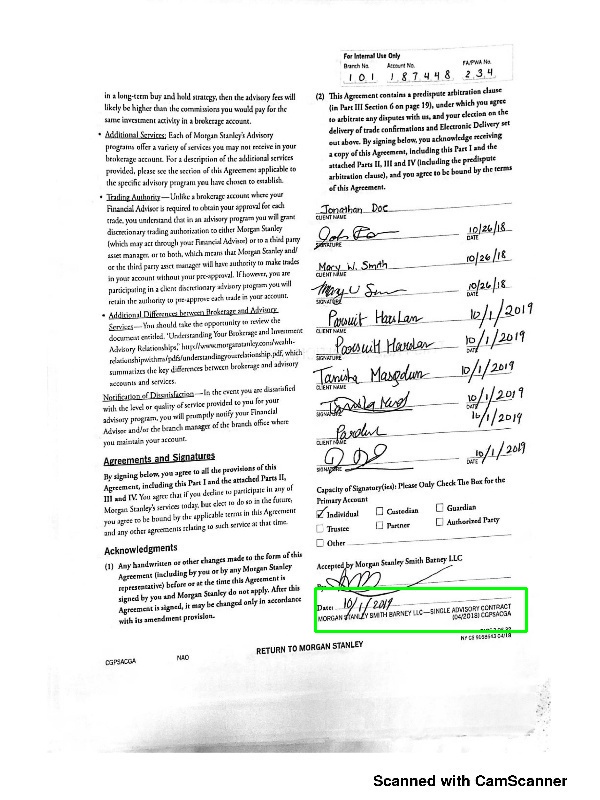 For Internal Use Only
Branch No. Account No. FA/PWA No.
1 0 1 1 8 7 4 4 8 2 3 4
in a long-term buy and hold strategy, then the advisory fees will
likely be higher than the commissions you would pay for the
same investment activity in a brokerage account.
• Additional Services: Each of Morgan Stanley's Advisory
programs offer a variety of services you may not receive in your
brokerage account. For a description of the additional services
provided, please see the section of this Agreement applicable to
the specific advisory program you have chosen to establish.
• Trading Authority—Unlike a brokerage account where your
Financial Advisor is required to obtain your approval for each
trade, you understand that in an advisory program you will grant
discretionary trading authorization to either Morgan Stanley
(which may act through your Financial Advisor) or to a third party
asset manager, or to both, which means that Morgan Stanley and/
or the third party asset manager will have authority to make trades
in your account without your pre-approval. If however, you are
participating in a client discretionary advisory program you will
retain the authority to pre-approve each trade in your account.
• Additional Differences between Brokerage and Advisory
Services—You should take the opportunity to review the
document entitled, "Understanding Your Brokerage and Investment
Advisory Relationships," http://www.morganstanley.com/wealth-
relationshipwithms/pdfs/understandingyourrelationship.pdf, which
summarizes the key differences between brokerage and advisory
accounts and services.
Notification of Dissatisfaction—In the event you are dissatisfied
with the level or quality of service provided to you for your
advisory program, you will promptly notify your Financial
Advisor and/or the branch manager of the branch office where
you maintain your account.
Agreements and Signatures
By signing below, you agree to all the provisions of this
Agreement, including this Part I and the attached Parts II,
III and IV. You agree that if you decline to participate in any of
Morgan Stanley's services today, but elect to do so in the future,
you agree to be bound by the applicable terms in this Agreement
and any other agreements relating to such service at that time.
Acknowledgments
(1) Any handwritten or other changes made to the form of this
Agreement (including by you or by any Morgan Stanley
representative) before or at the time this Agreement is
signed by you and Morgan Stanley do not apply. After this
Agreement is signed, it may be changed only in accordance
with its amendment provision.
(2) This Agreement contains a predispute arbitration clause
(in Part III Section 6 on page 19), under which you agree
to arbitrate any disputes with us, and your election on the
delivery of trade confirmations and Electronic Delivery set
out above. By signing below, you acknowledge receiving
a copy of this Agreement, including this Part I and the
attached Parts II, III and IV (including the predispute
arbitration clause), and you agree to be bound by the terms
of this Agreement.
Jonathan Doc
CLIENT NAME
10/26/18
SIGNATURE DATE
Mary W. Smith 10/26/18
CLIENT NAME
10/26/18
SIGNATURE DATE
Parsuit Harlan 10/1/2019
CLIENT NAME
Parsuit Harlan 10/1/2019
SIGNATURE
Tanisha Masedun 10/1/2019
CLIENT NAME
10/1/2019
SIGNATURE DATE
10/1/2019
CLIENT NAME
10/1/2019
SIGNATURE DATE
Capacity of Signatory(ies): Please Only Check The Box for the
Primary Account
Individual Custodian Guardian
Trustee Partner Authorized Party
Other
Accepted by Morgan Stanley Smith Barney LLC
By:
Date: 10/1/2019
MORGAN STANLEY SMITH BARNEY LLC—SINGLE ADVISORY CONTRACT
(04/2018) CGPSACGA
CGPSACGA NAO
RETURN TO MORGAN STANLEY
Scanned with CamScanner